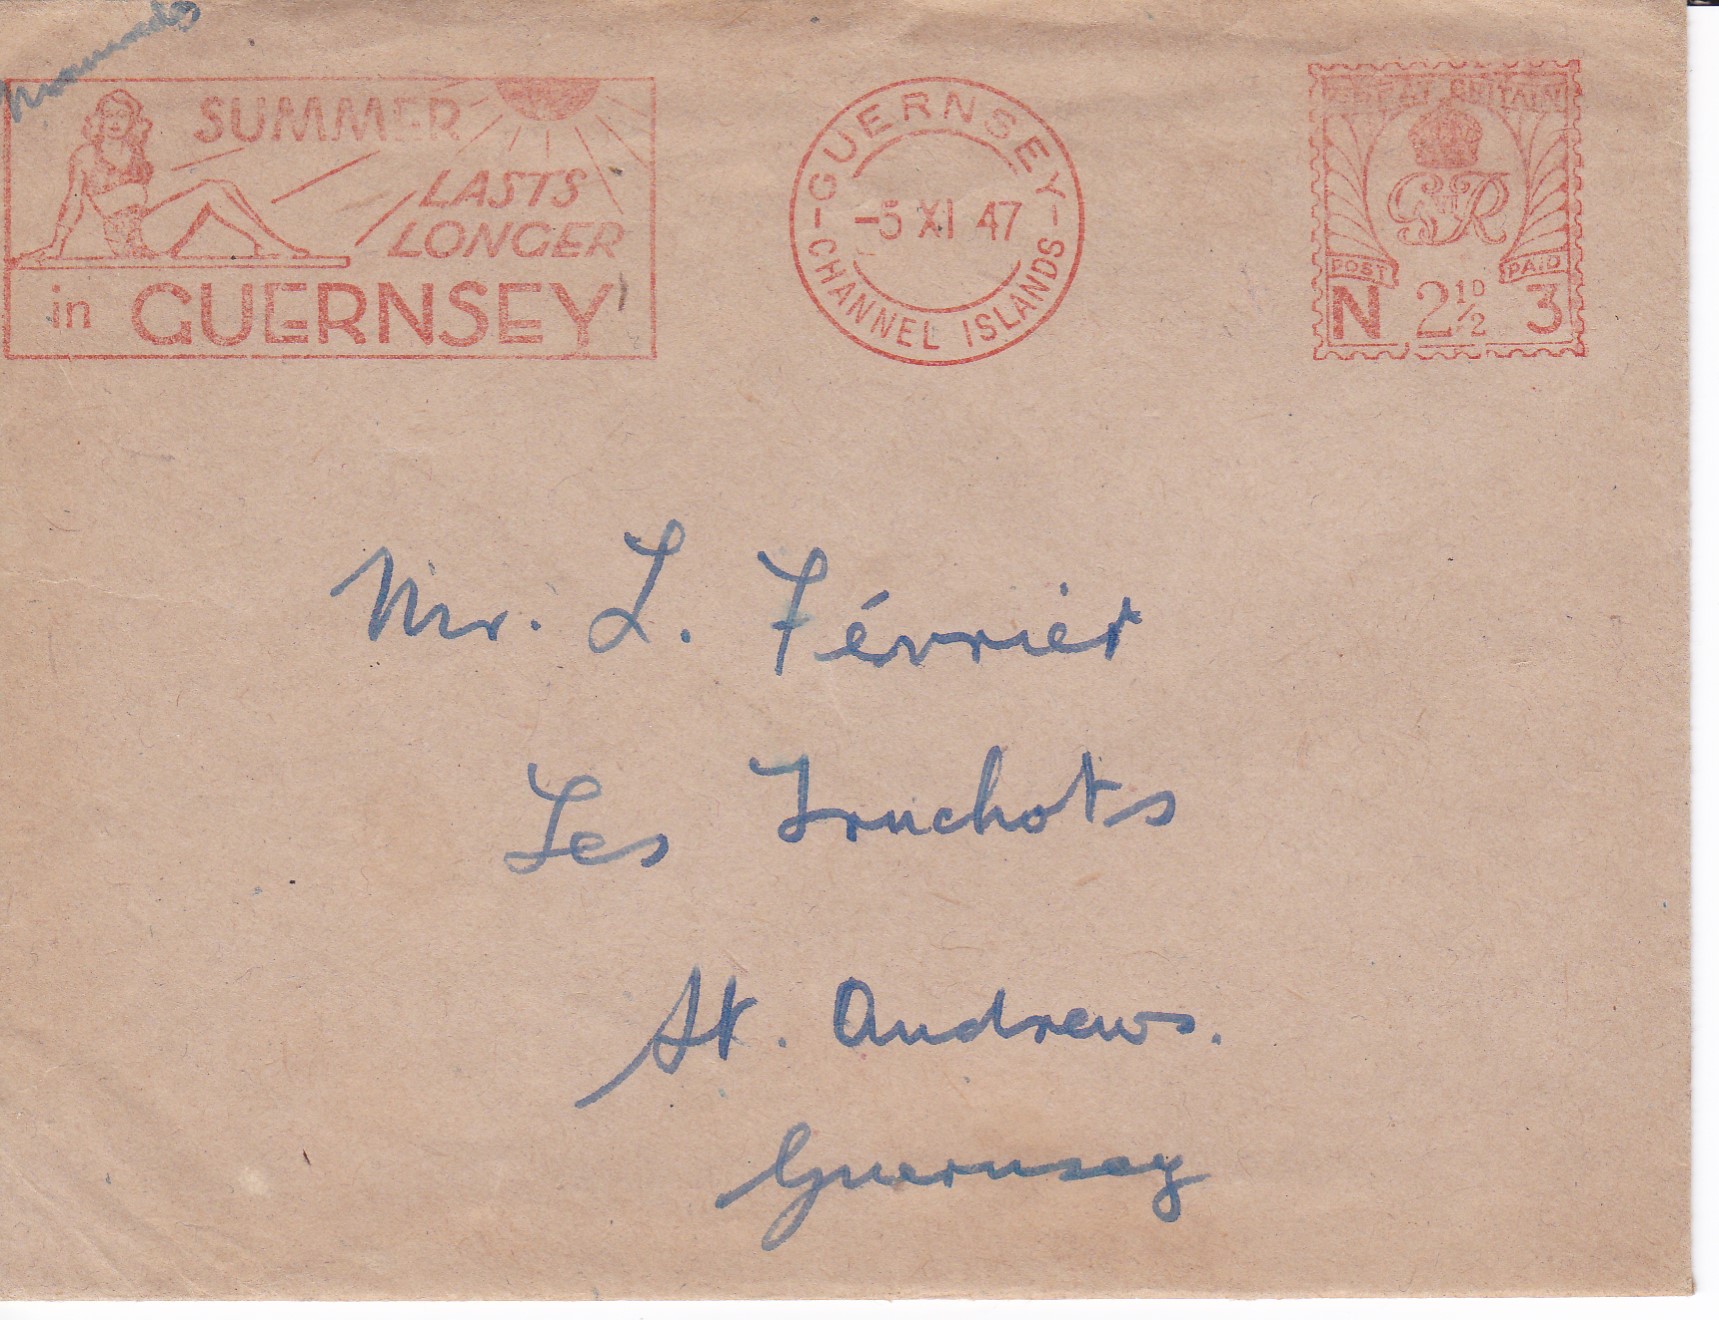 SUMMER
LASTS
LONGER
in GUERNSEY
GUERNSEY
-5 XI 47
CHANNEL ISLANDS
GREAT BRITAIN
G VI R
POST PAID
N 2½D 3
Mr. L. Février
Les Truchots
St. Andrews.
Guernsey